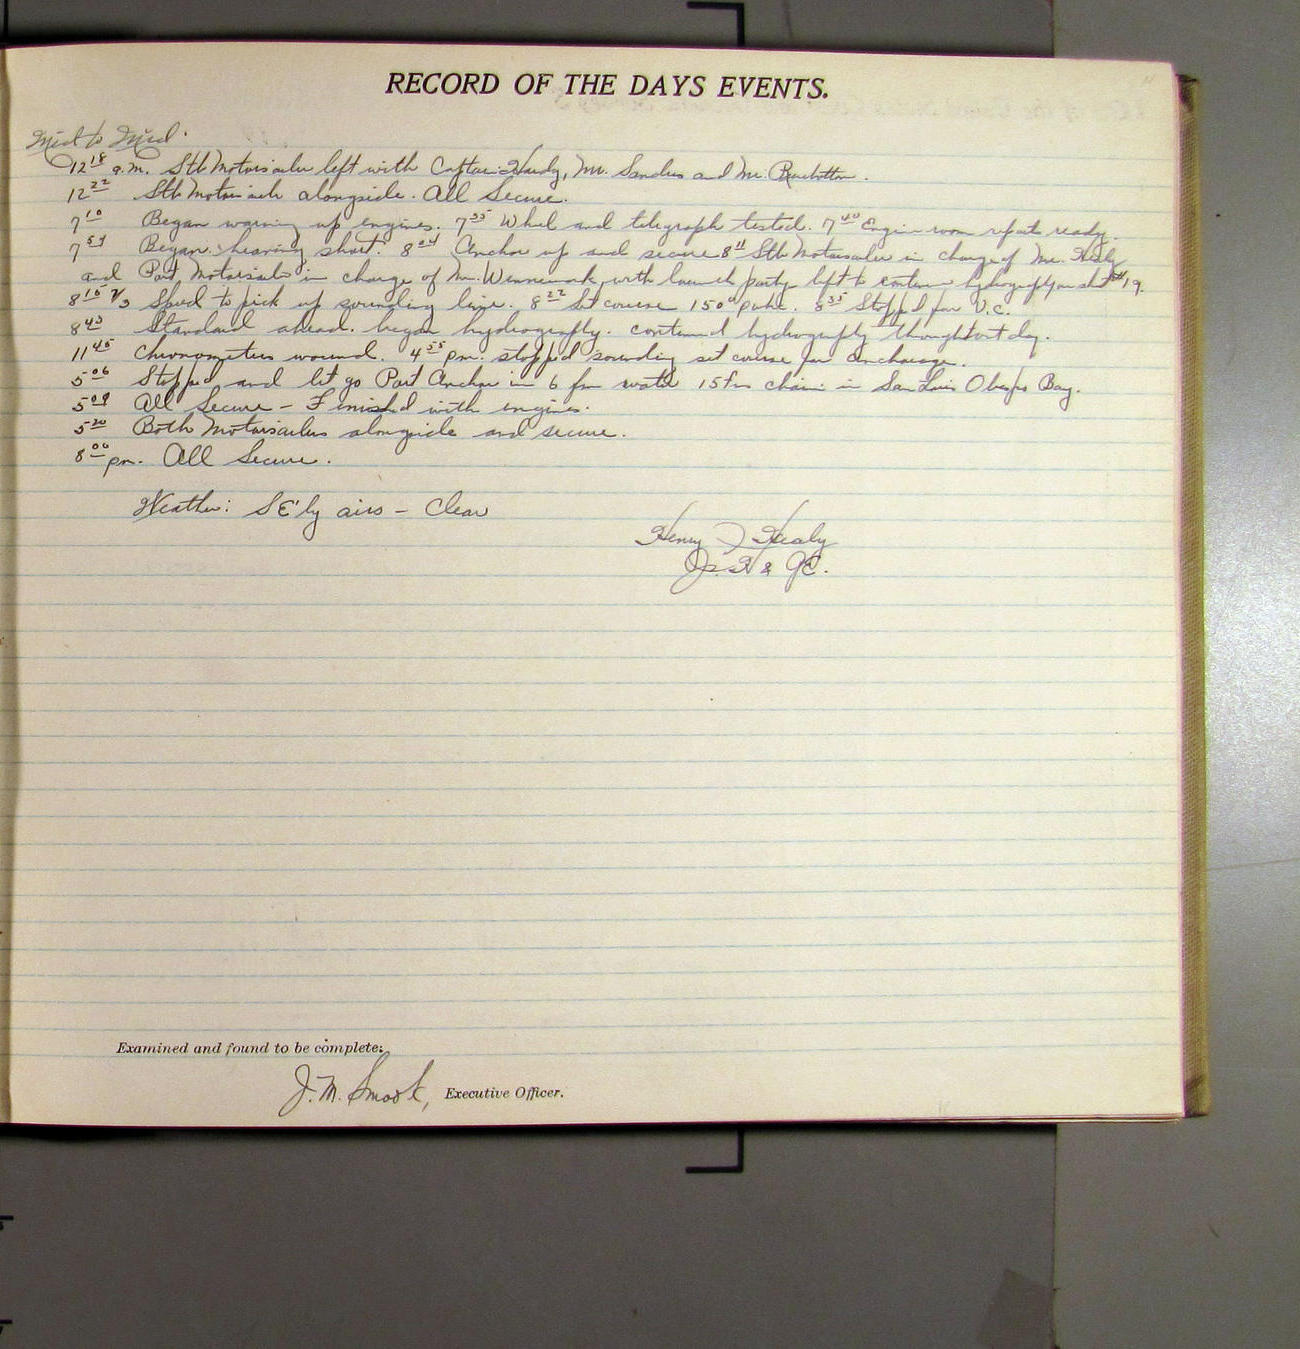 RECORD OF THE DAYS EVENTS.
Mid to Mid.
12 18 a.m. Stb Motorsailer left with Captain Hardy, Mr. Sanders and Mr.
12 22 Stb Motorsailer alongside. All Secure.
7 10 Began warming up engines. 7 35 Wheel and telegraph tested. 7 40 Engine room reports ready.
7 54 Began heaving short. 8 04 Anchor up and secure 8 11 Stb Motorsailer in charge of Mr. Healy
and Port Motorsailer in charge of Mr. Wennermark, with launch party left to continue hydrography on sheet #19.
8 15 1/3 Speed to pick up sounding line. 8 22 Set course 150° pshc. 8 35 Stopped for V.C.
8 43 Standard ahead. began hydrography. continued hydrography thoughtout day.
11 45 Chronometers wound. 4 55 pm. stopped sounding set course for anchorage.
5 06 Stopped and let go Port Anchor in 6 fm water 15 fms chain in San Luis Obispo Bay.
5 09 All Secure - Finished with engines.
5 20 Both Motorsailers alongside and secure.
8 00 pm. All Secure.
Weather: SE'ly airs - Clear
Henry J Healy
Jr. H & G E.
Examined and found to be complete:
J. M. Smook, Executive Officer.